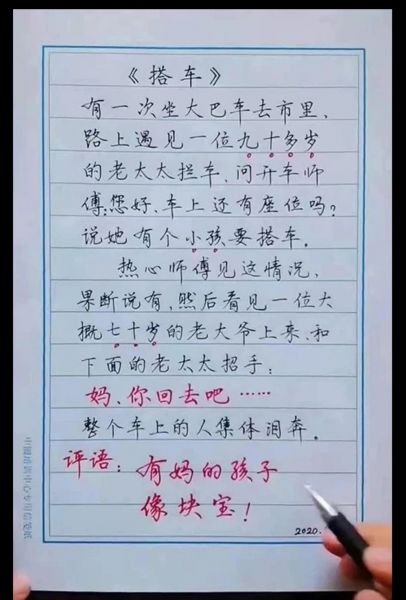 《搭车》
有一次坐大巴车去市里,
路上遇见一位九十多岁
的老太太拦车、问开车师
傅:您好、车上还有座位吗?
说她有个小孩要搭车。
热心师傅见这情况,
果断说有,然后看见一位大
概七十岁的老大爷上来、和
下面的老太太招手:
妈、你回去吧……
整个车上的人集体泪奔。
评语:有妈的孩子
像块宝!
2020.